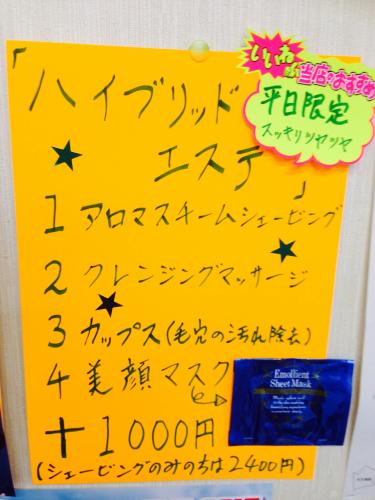 「ハイブリッド
エステ」
いいね
当店のおすすめ
平日限定
スッキリツヤツヤ
1 アロマスチームシェービング
2 クレンジングマッサージ
3 カップス(毛穴の汚れ除去)
4 美顔マスク
Emollient
Sheet Mask
+1000円
(シェービングのみのちは2400円)